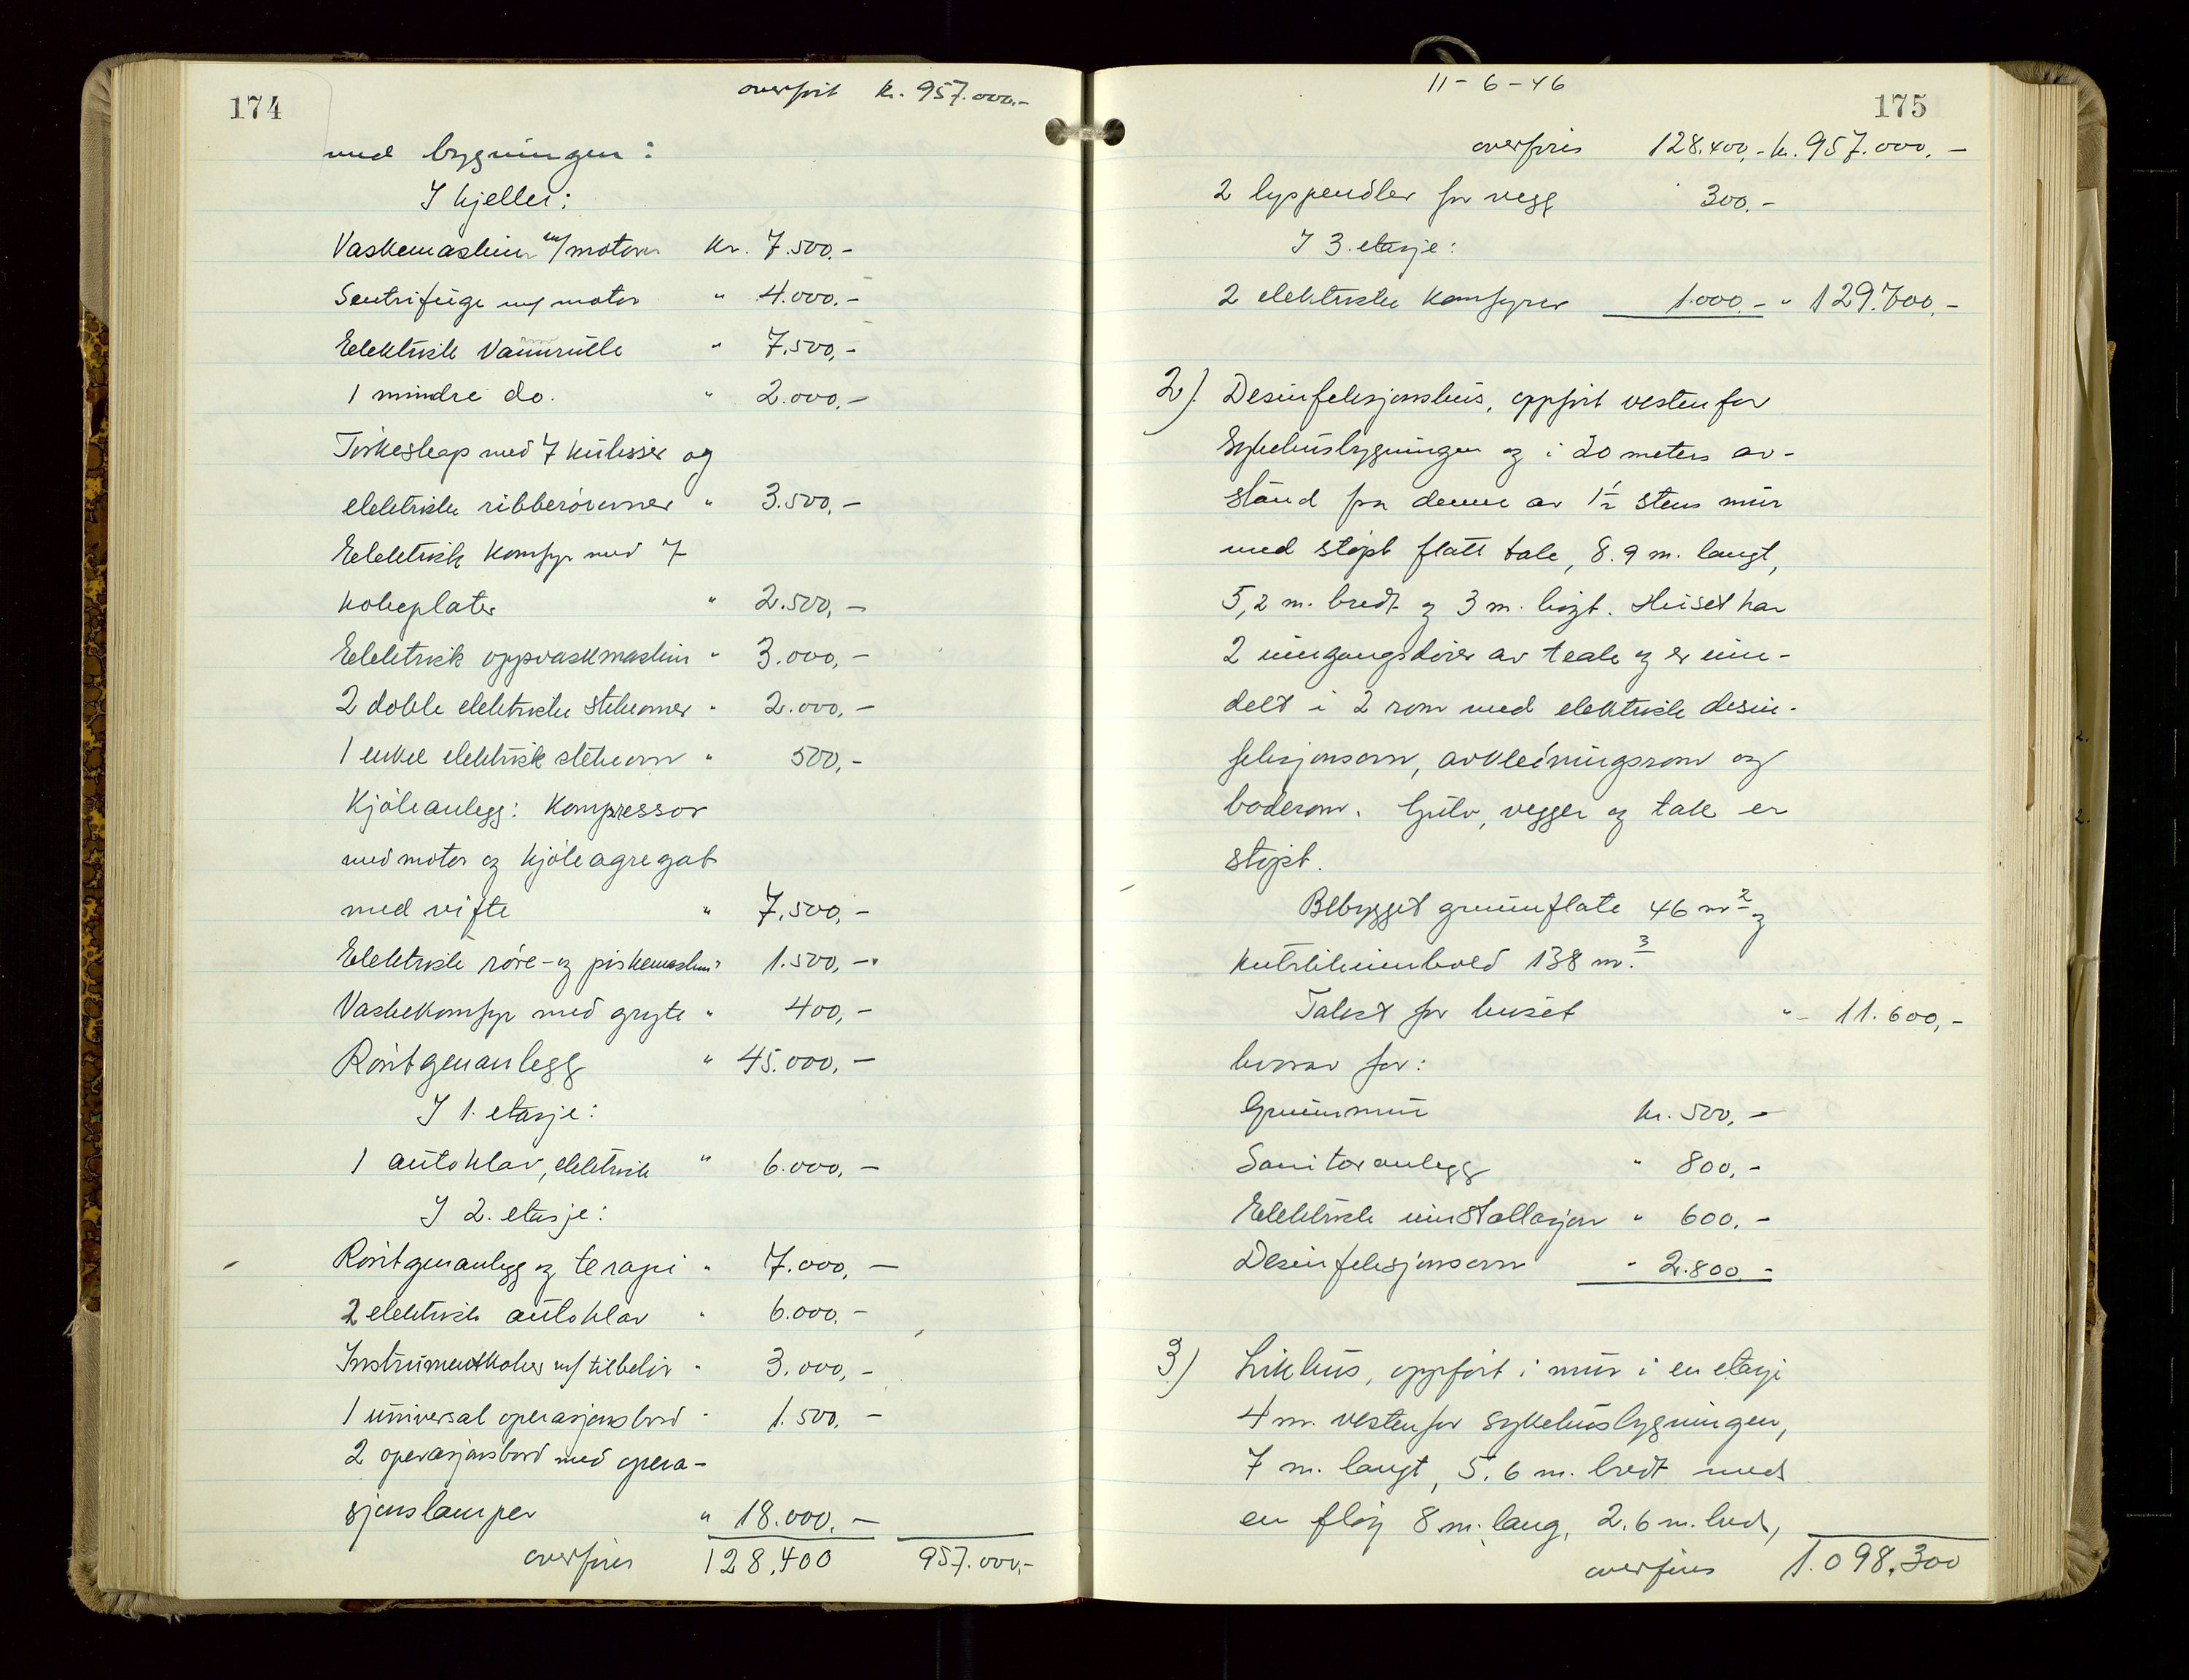 174
overført kr. 957.000.-
med bygningen:
I kjeller:
Vaskemaskin m/motor kr. 7.500.-
Sentrifuge m/ motor " 4.000.-
Elektrisk Vannrulle " 7.500,-
1 mindre do. " 2.000,-
Tørkeskap med 7 kulisser og
elektriske ribberørovner " 3.500,-
Elektrisk komfyr med 7
kokeplater " 2.500,-
Elektrisk oppvaskmaskin " 3.000,-
2 doble elektriske stekeovner " 2.000,-
1 enkel elektrisk stekeovn " 500,-
Kjøleanlegg: Kompressor
med motor og kjøleagregat
med vifte " 7.500,-
Elektrisk røre- og piskemaskin " 1.500,-
Vaskekomfyr med gryte " 400,-
Røntgenanlegg " 45.000,-
I 1. etasje:
1 autoklav, elektrisk " 6.000,-
I 2. etasje:
Røntgenanlegg og terapi " 7.000,-
2 elektrisk autoklav " 6.000.-
Instrumentkoker m/ tilbehør " 3.000,-
1 universal operasjonsbord " 1.500,-
2 operasjonsbord med opera-
sjonslamper " 18.000,-
overføres 128.400 957.000,-
11-6-46
175
overføres 128.400,- kr. 957.000,-
2 lyspendler for vegg 300.-
I 3. etasje:
2 elektriske komfyrer 1.000.- " 129.700,-
2). Desinfeksjonshus, oppført vestenfor
Sykehusbygningen og i 20 meters av-
stand fra denne av 1½ stens mur
med støpt flatt tak, 8.9 m. langt,
5,2 m. bredt og 3 m. høgt. Huset har
2 inngangsdører av teak og er inn-
delt i 2 rom med elektrisk desin-
feksjonsovn, avkledningsrom og
baderom. Gulv, vegger og tak er
støpt.
Bebygget grunnflate 46 m² og
kubikkinnhold 138 m.³
Takst for huset " 11.600,-
hvorav for:
Grunnmur kr. 500,-
Sanitæranlegg " 800,-
Elektrisk installasjon " 600.-
Desinfeksjonsovn " 2.800.-
3) Likhus, oppført i mur i en etasje
4 m. vestenfor sykehusbygningen,
7 m. langt, 5.6 m. bredt med
en fløy 8 m. lang, 2.6 m. bred,
overføres 1.098.300